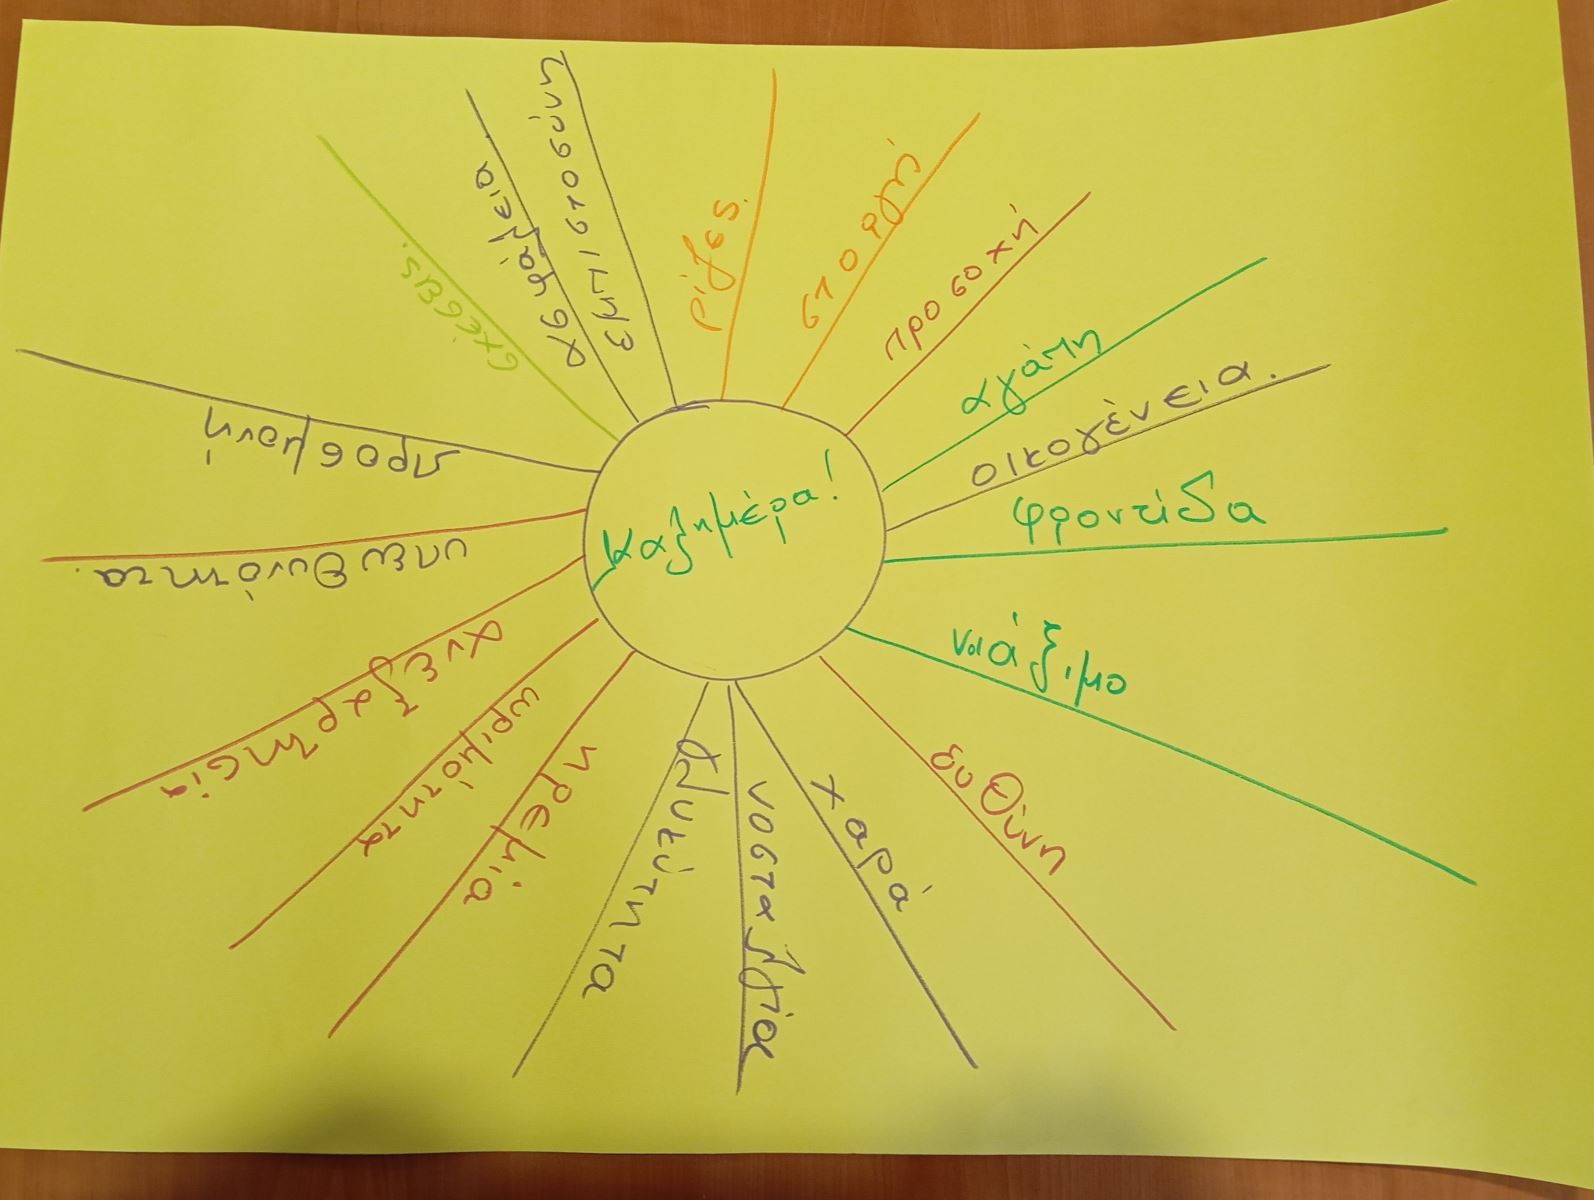 Καλημέρα!
ρίζες.
στοργή
προσοχή
αγάπη
οικογένεια.
φροντίδα
νοιάξιμο
ευθύνη
χαρά
νοσταλγία
ηρεμία
ωριμότητα
ανεξαρτησία
υπευθυνότητα.
προσμονή
σχέσεις.
ασφάλεια
εμπιστοσύνη